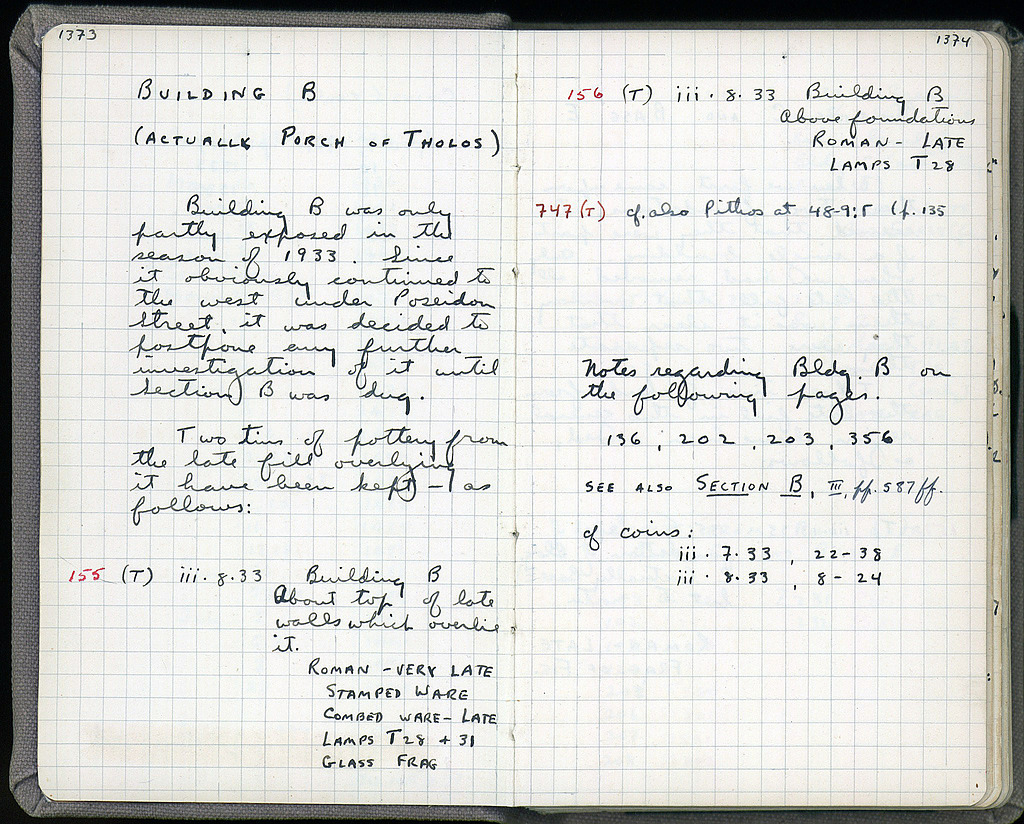 1373
BUILDING B
(ACTUALLY PORCH OF THOLOS)
Building B was only
partly exposed in the
season of 1933. Since
it obviously continued to
the west under Poseidon
Street, it was decided to
postpone any further
investigation of it until
Section B was dug.
Two tins of pottery from
the late fill overlying
it have been kept - as
follows:
155 (T) iii. 8. 33 Building B
About top of late
walls which overlie
it.
ROMAN - VERY LATE
STAMPED WARE
COMBED WARE - LATE
LAMPS T 28 + 31
GLASS FRAG
1374
156 (T) iii. 8. 33 Building B
Above foundations
ROMAN - LATE
LAMPS T 28
747 (T) cf. also Pithos at 48-9:Γ (p. 135
Notes regarding Bldg. B on
the following pages.
136, 202, 203, 356
SEE ALSO SECTION B, III, pp. 587 ff.
cf coins:
iii. 7. 33, 22-38
iii. 8. 33, 8 - 24